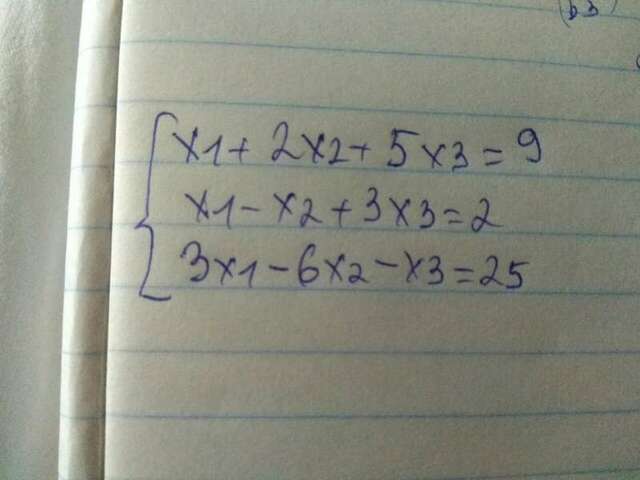 (b3)
x1 + 2x2 + 5x3 = 9
x1 - x2 + 3x3 = 2
3x1 - 6x2 - x3 = 25